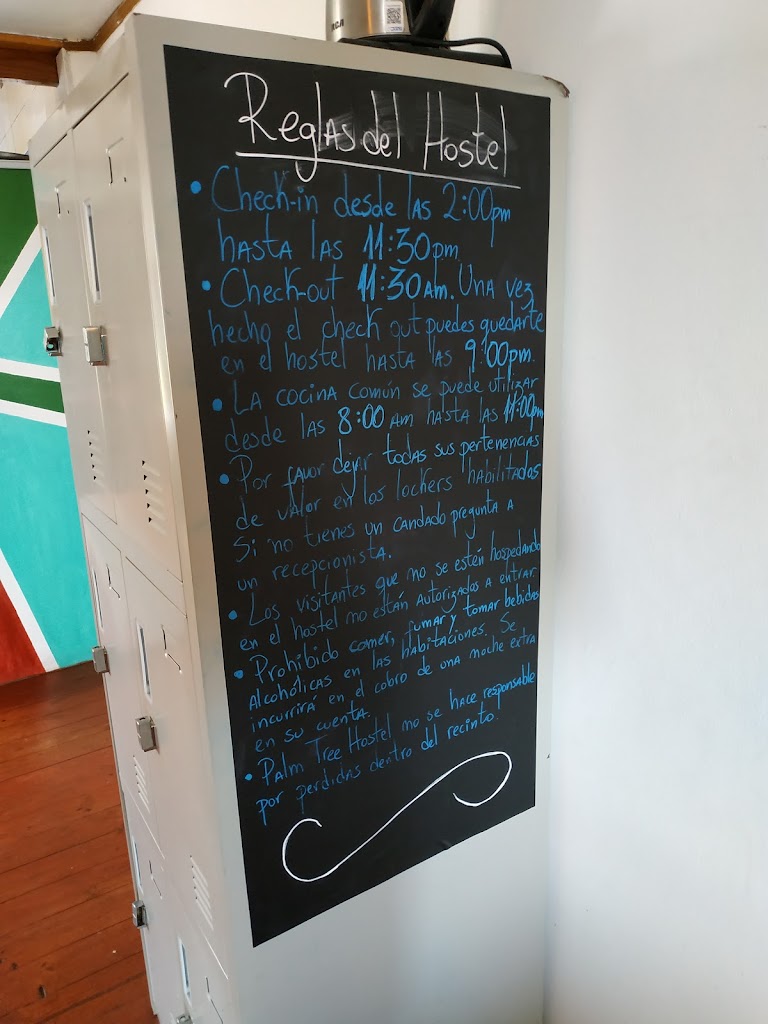 RCA
Reglas del Hostel
• Check-in desde las 2:00pm
hasta las 11:30pm
• Check-out 11:30 Am. Una vez
hecho el check out puedes quedarte
en el hostel hasta las 9:00pm.
• La cocina común se puede utilizar
desde las 8:00 Am hasta las 11:00pm
• Por favor dejar todas sus pertenencias
de valor en los lockers habilitados
Si no tienes un candado pregunta a
un recepcionista.
• Los visitantes que no se estén hospedando
en el hostel no están autorizados a entrar.
• Prohibido comer, fumar y tomar bebidas
alcohólicas en las habitaciones. Se
incurrirá en el cobro de una noche extra
en su cuenta.
• Palm Tree Hostel no se hace responsable
por perdidas dentro del recinto.